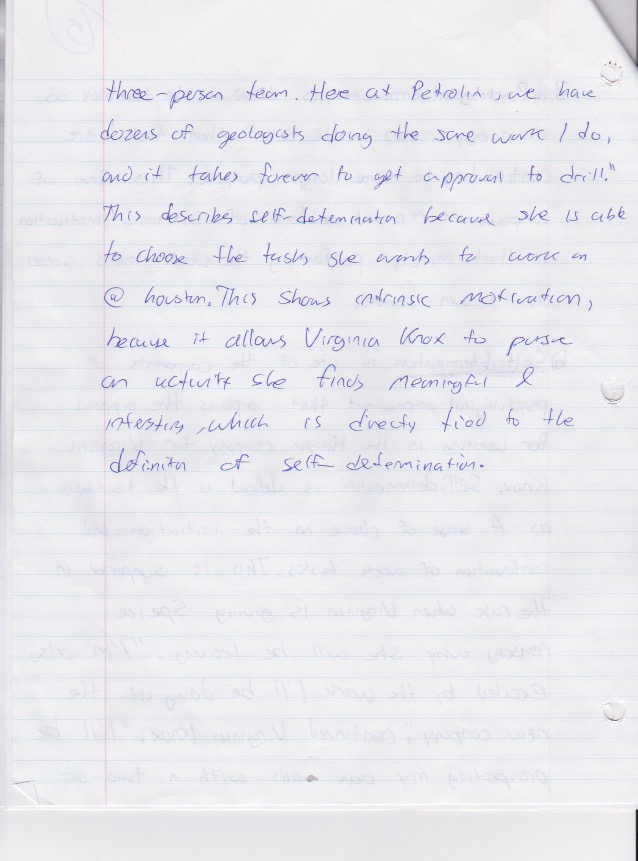 three-person team. Here at Petrolin, we have
dozers of geologists doing the same work I do,
and it takes forever to get approval to drill."
This describes self-determination because she is able
to choose the tasks she wants to work on
@ houston. This shows intrinsic motivation,
because it allows Virginia Knox to pursue
an activity she finds meaningful &
intersting, which is directly tied to the
definiton of self-determination.